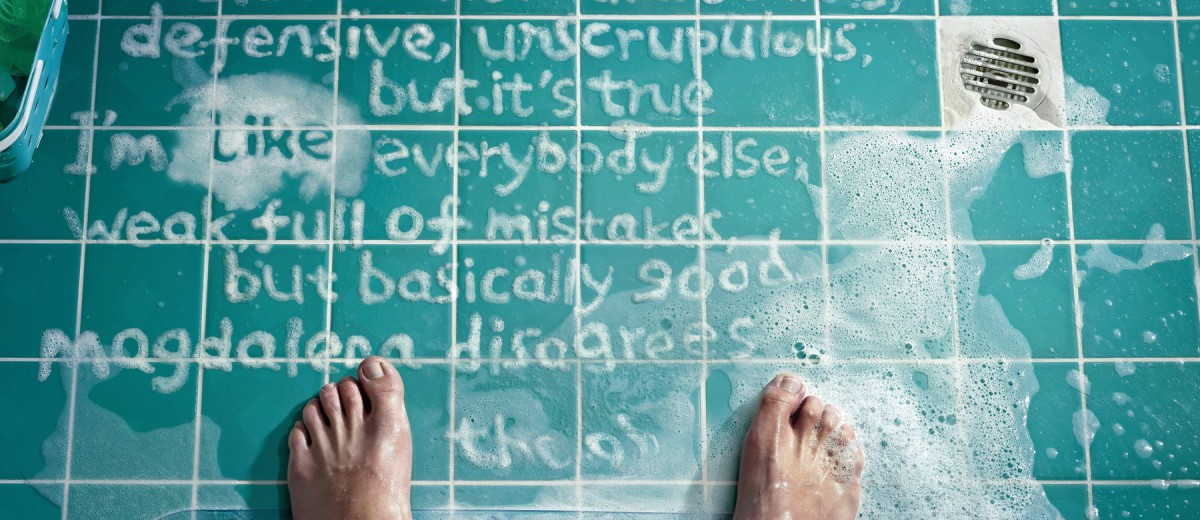 defensive, unscrupulous
but it's true
I'm like everybody else,
weak, full of mistakes,
but basically good
magdalena disagrees